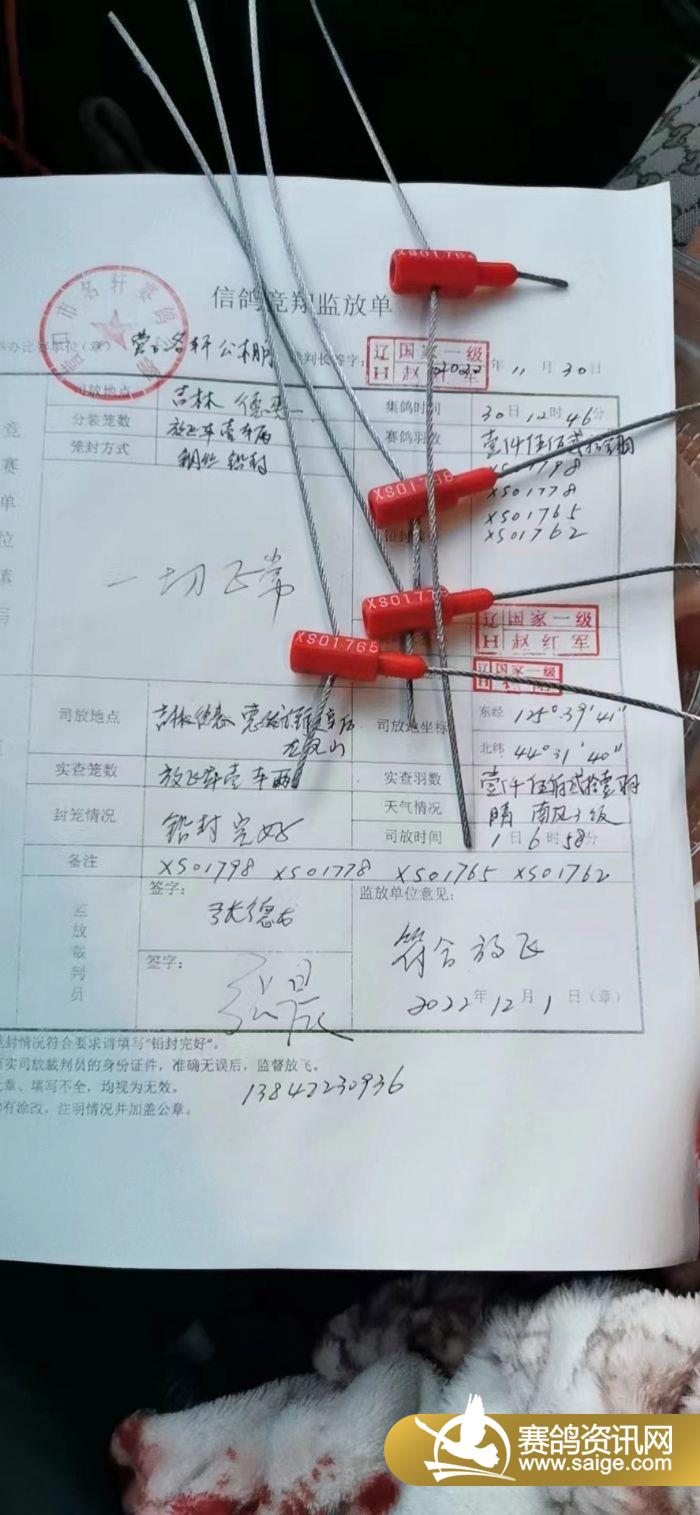 信鸽竞翔监放单
营口名轩公棚
判长签字:
辽 国家一级
H 赵红军
年 11 月 30 日
司放地点
吉林 德惠
集鸽时间
30日12时46分
分装笼数
放飞车壹车
赛鸽羽数
笼封方式
钢丝 铅封
XS01798
XS01778
XS01765
XS01762
竞赛单位填写
一切正常
XS01762
XS01798
XS01778
XS01765
辽 国家一级
H 赵红军
辽 国家一级
司放地点
司放地坐标
东经 125°39'41"
北纬 44°31'40"
实查笼数
放飞车壹车
实查羽数
封笼情况
铅封完好
天气情况
晴 南风
司放时间
1日6时58分
备注
XS01798 XS01778 XS01765 XS01762
监放裁判员
签字:
张德
签字:
监放单位意见:
符合放飞
2022年12月1日(章)
封情况符合要求请填写"铅封完好"。
实司放裁判员的身份证件,准确无误后,监督放飞。
章、填写不全,均视为无效。
有涂改,注明情况并加盖公章。
13842230936
赛鸽资讯网
www.saige.com